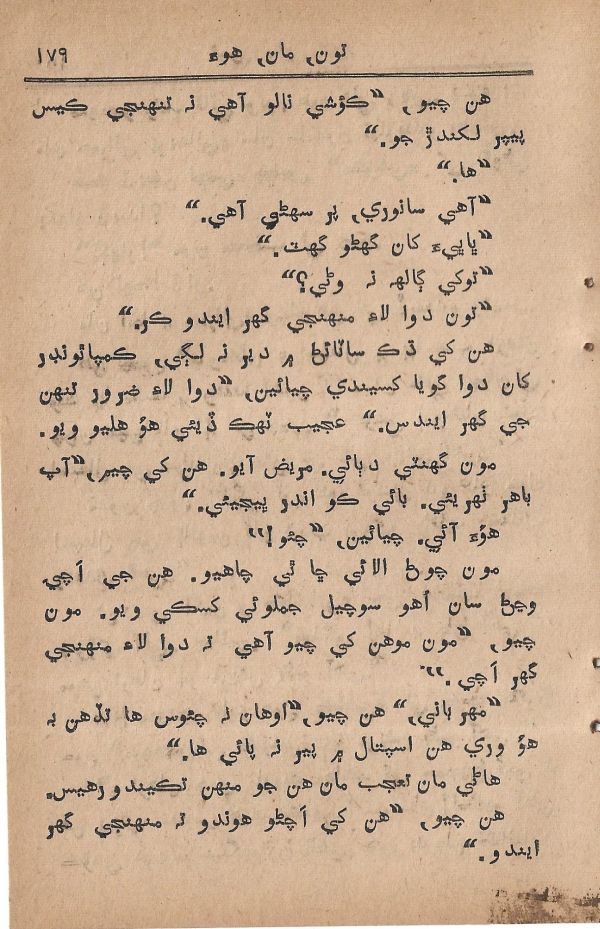 تون، مان، هوءَ ١٧٩
هن چيو، ”ڪؤشي نالو آهي نہ تنهنجي ڪيس
پيپر لکندڙ جو.“
”ها.“
”آهي سانوري، پر سهڻي آهي.“
”ڀاڀيءَ کان گهڻو گهٽ.“
”توکي ڳالهہ نہ وڻي؟“
”تون دوا لاءِ منهنجي گهر ايندو ڪر.“
هن کي ڌڪ سانڍائڻ ۾ دير نہ لڳي، ڪمپائونڊر
کان دوا گويا کسيندي چيائين، ”دوا لاءِ ضرور تنهن
جي گهر ايندس.“ عجيب ٽهڪ ڏيئي هؤ هليو ويو.
مون گهنٽي دٻائي. مريض آيو. هن کي چيم، ”آپ
باهر ٺهريئي. بائي ڪو اندر ڀيجيئي.“
هوءَ آئي. چيائين، ”چئو!“
مون چوڻ الائي ڇا ٿي چاهيو. هن جي اَچي
وڃڻ سان اُهو سوچيل جملوئي کسڪي ويو. مون
چيو، ”مون موهن کي چيو آهي تہ دوا لاءِ منهنجي
گهر اَچي.“
”مهرباني،“ هن چيو، ”اوهان نہ چئوس ها تڏهن بہ
هؤ وري هن اسپتال ۾ پير نہ پائي ها.“
هاڻي مان تعجب مان هن جو منهن تڪيندو رهيس.
هن چيو، ”هن کي اَچڻو هوندو تہ منهنجي گهر
ايندو.“